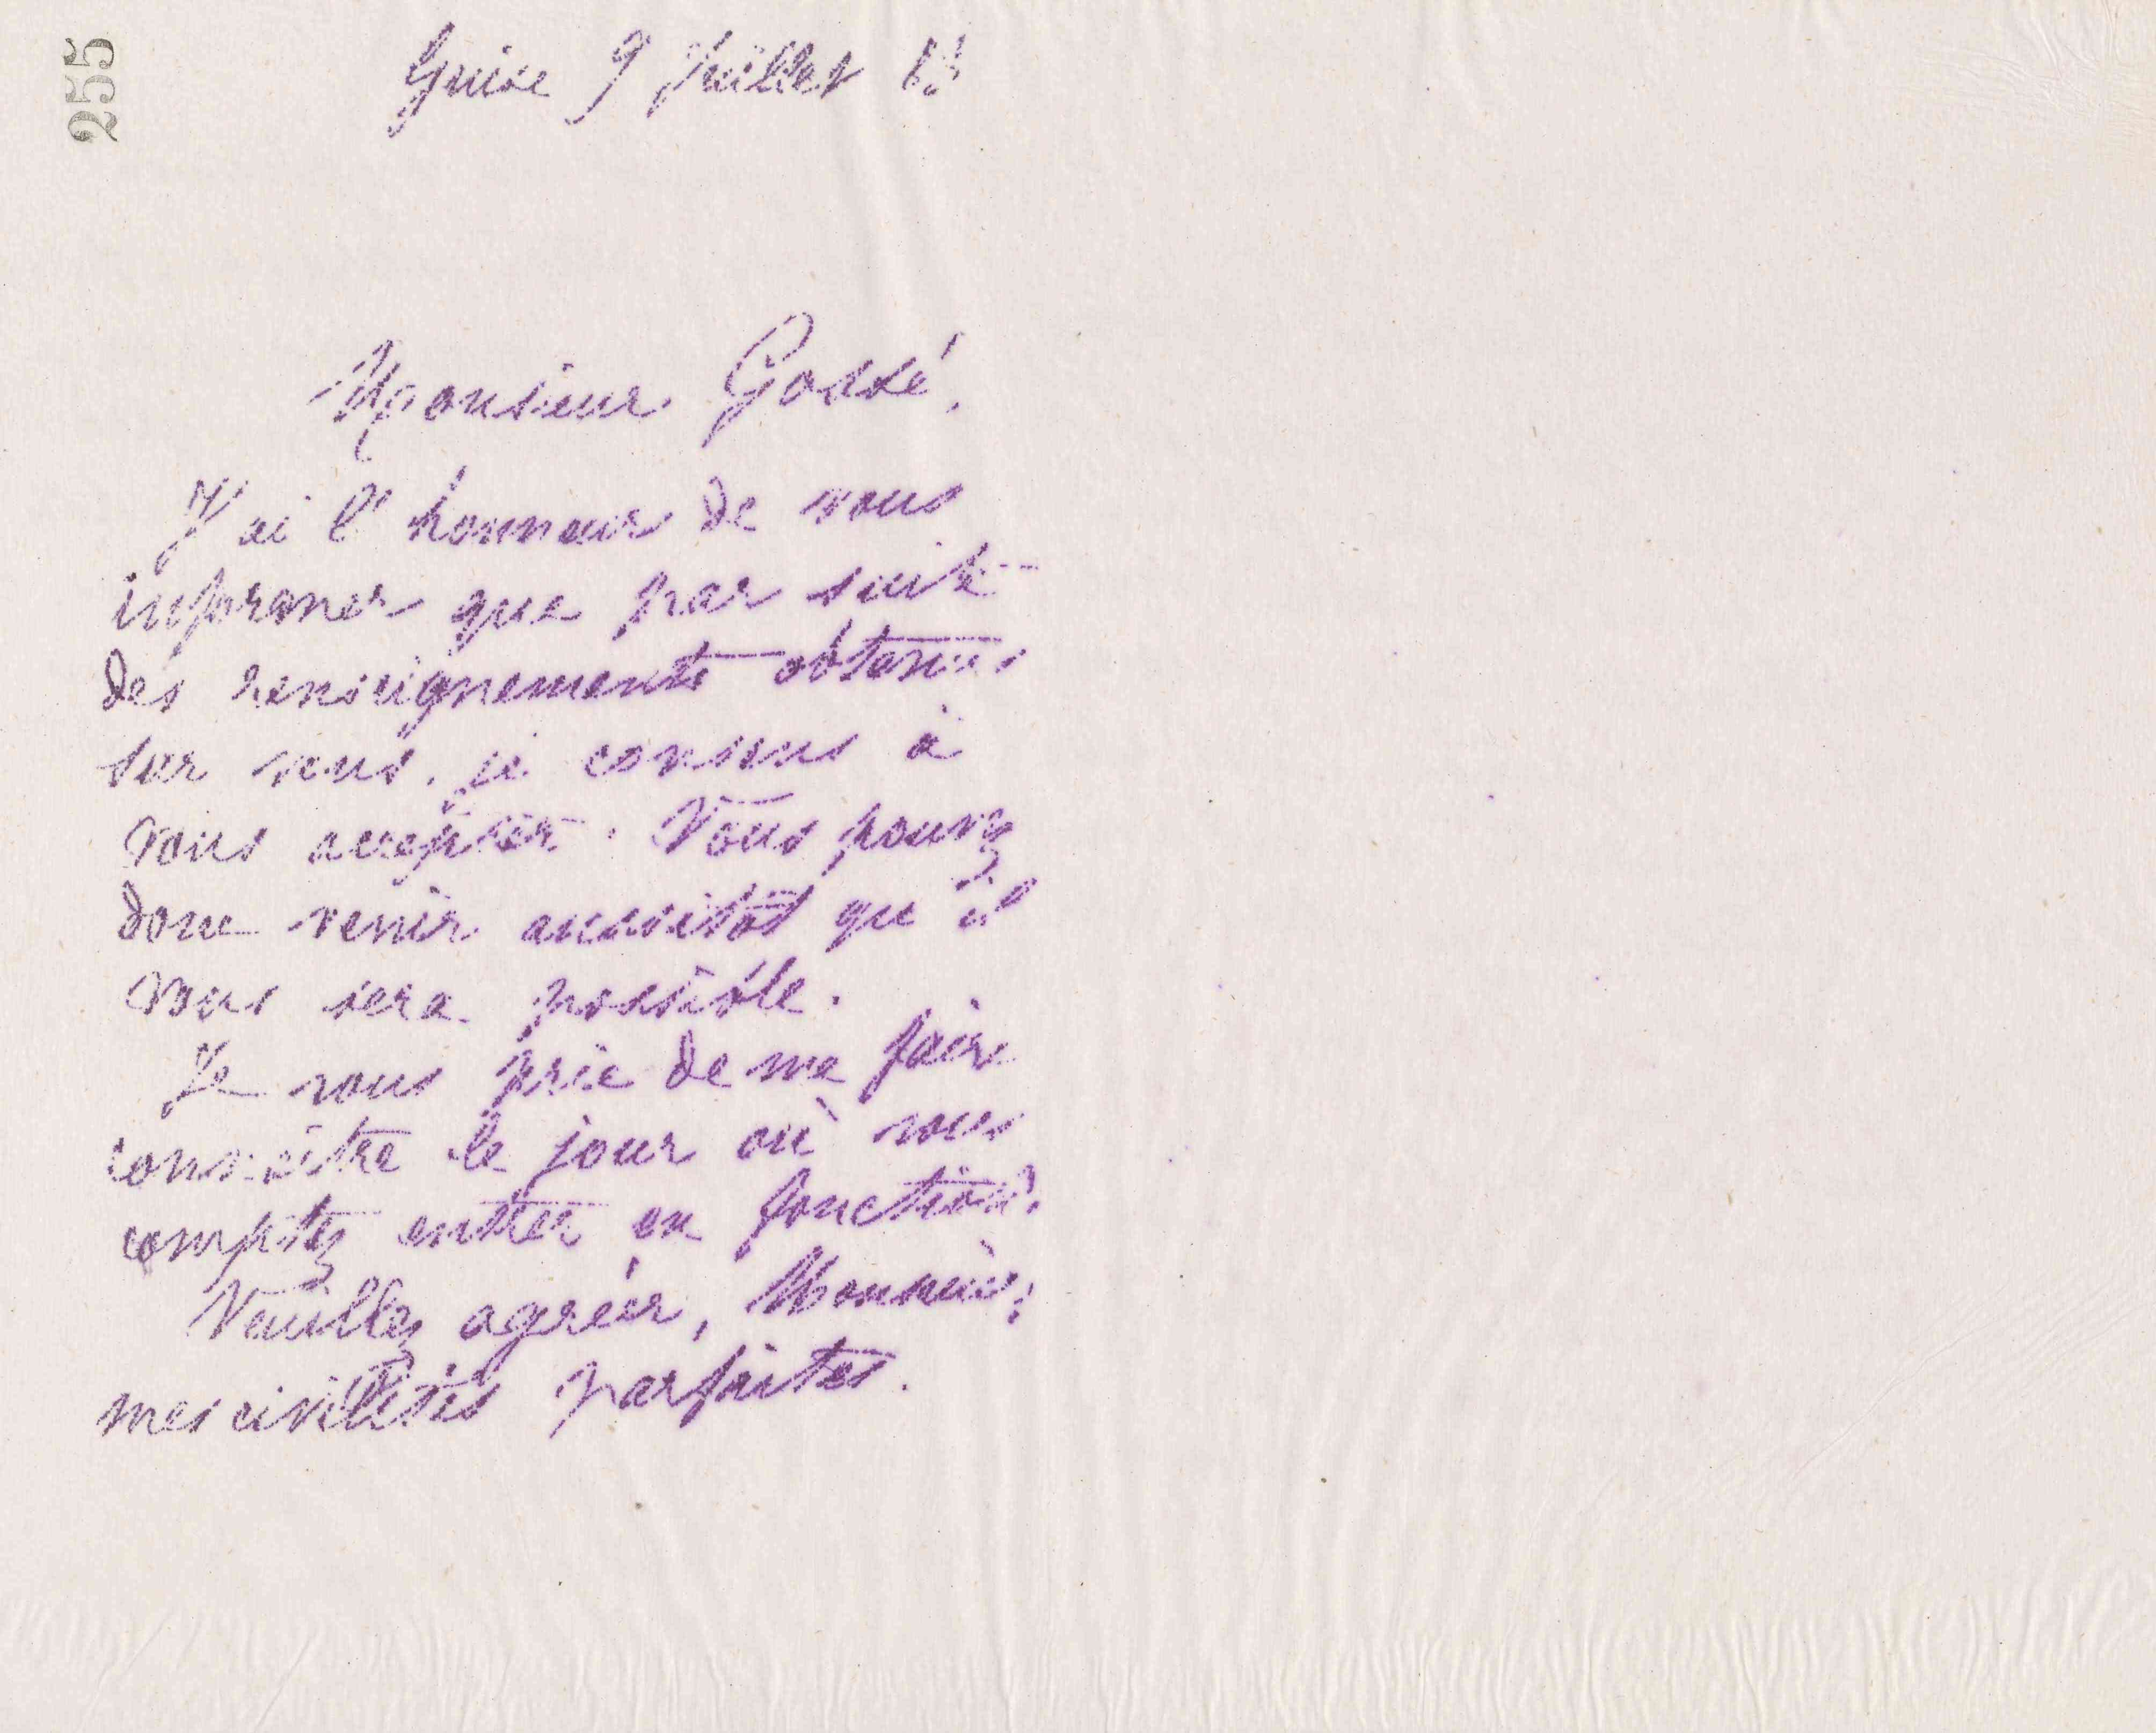 255
Guise 9 Juillet
Monsieur Gossé,
J'ai l'honneur de vous
informer que par suite
des renseignements obtenus
sur vous, je consens à
vous accepter. Vous pouvez
donc venir aussitôt qu'il
vous sera possible.
Je vous prie de me faire
connaître le jour où vous
comptez entrer en fonction.
Veuillez agréer, Monsieur,
mes civilités parfaites.